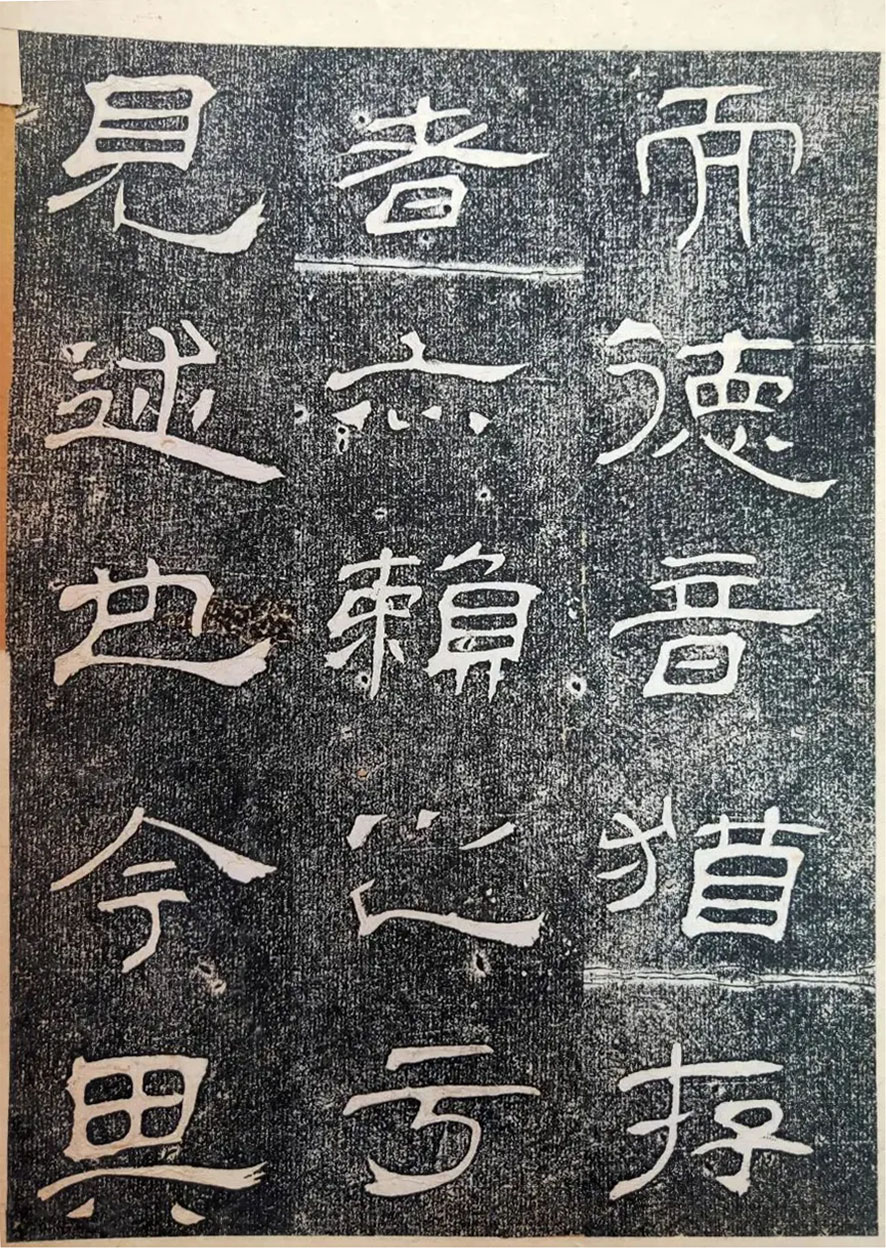 而德音猶存
者亦賴之于
見述也今其